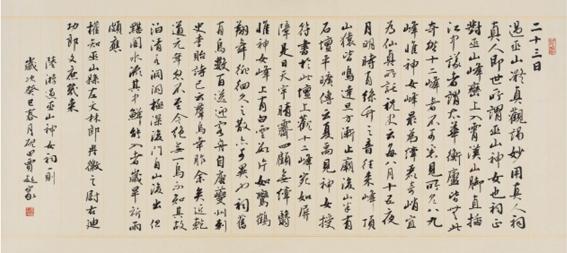 二十三日
過巫山凝真觀謁妙用真人祠
真人即世所謂巫山神女也祠正
對巫山峰巒上入霄漢山脚直插
江中議者謂太華衡廬皆無此
奇然十二峰者不可悉見所見八九
峰惟神女峰最為纖麗奇峭宜
為仙真所託祝史云每八月十五夜
月明時有絲竹之音往來峰頂
山猿皆鳴達旦方漸止廟後山半有
石壇平曠傳云夏禹見神女授
符書於此壇上觀十二峰宛如屏
障是日天宇晴霽四顧無纖翳
惟神女峰上有白雲數片如鸞鶴
翔舞徘徊久之不散亦可異也祠舊
有烏數百送迎客舟自唐夔州刺
史李貽詩已云群烏幸胙餘矣近乾
道元年忽不至今絕無一烏不知其故
泊清水洞洞極深後門自山後出但
黮闇水流其中鮮能入者歲旱祈雨
頗應
權知巫山縣左文林郎冉徽之尉右迪
功郎文庶幾來
陸游過巫山神女祠一則
歲次癸巳春月硯田